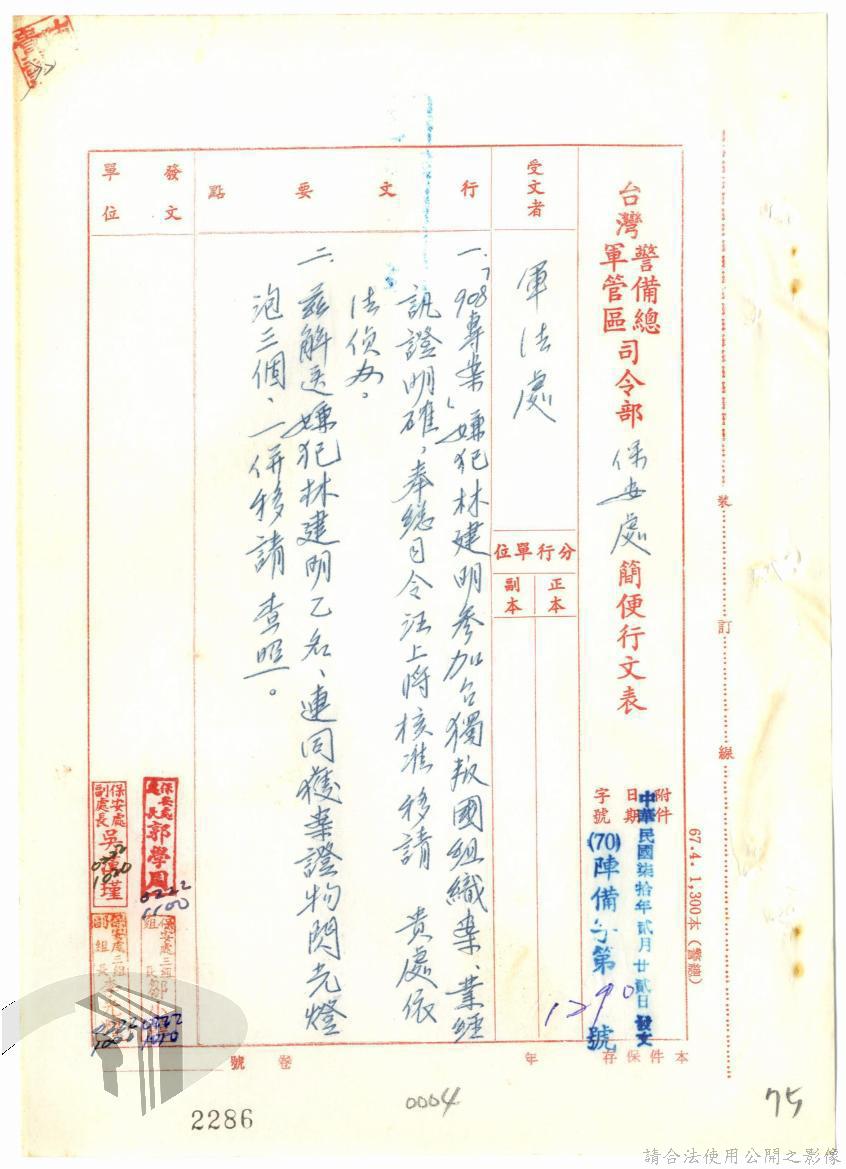 台灣警備總軍管區司令部保安處簡便行文表
受文者
軍法處
分行單位
正本
副本
附件
日期
字號
中華民國柒拾年貳月廿貳日發文
(70)陣備字第1290號
行文要點
一、「908專案」嫌犯林建明參加台獨叛國組織案、業經
訊證明確，奉總司令汪上將核准移請 貴處依
法偵办。
二、茲解送嫌犯林建明乙名、連同獲案證物閃光燈
泡三個、一併移請 查照。
發文單位
保安處處長郭學周
0222
1100
保安處副處長吳
瑾
0222
1020
保安處三組
組長
0222
1020
保安處三組
副組長
0222
1000
本件保存 年
卷 號
67.4. 1,300本(警總)
裝
訂
線
2286
0004
75
請合法使用公開之影像